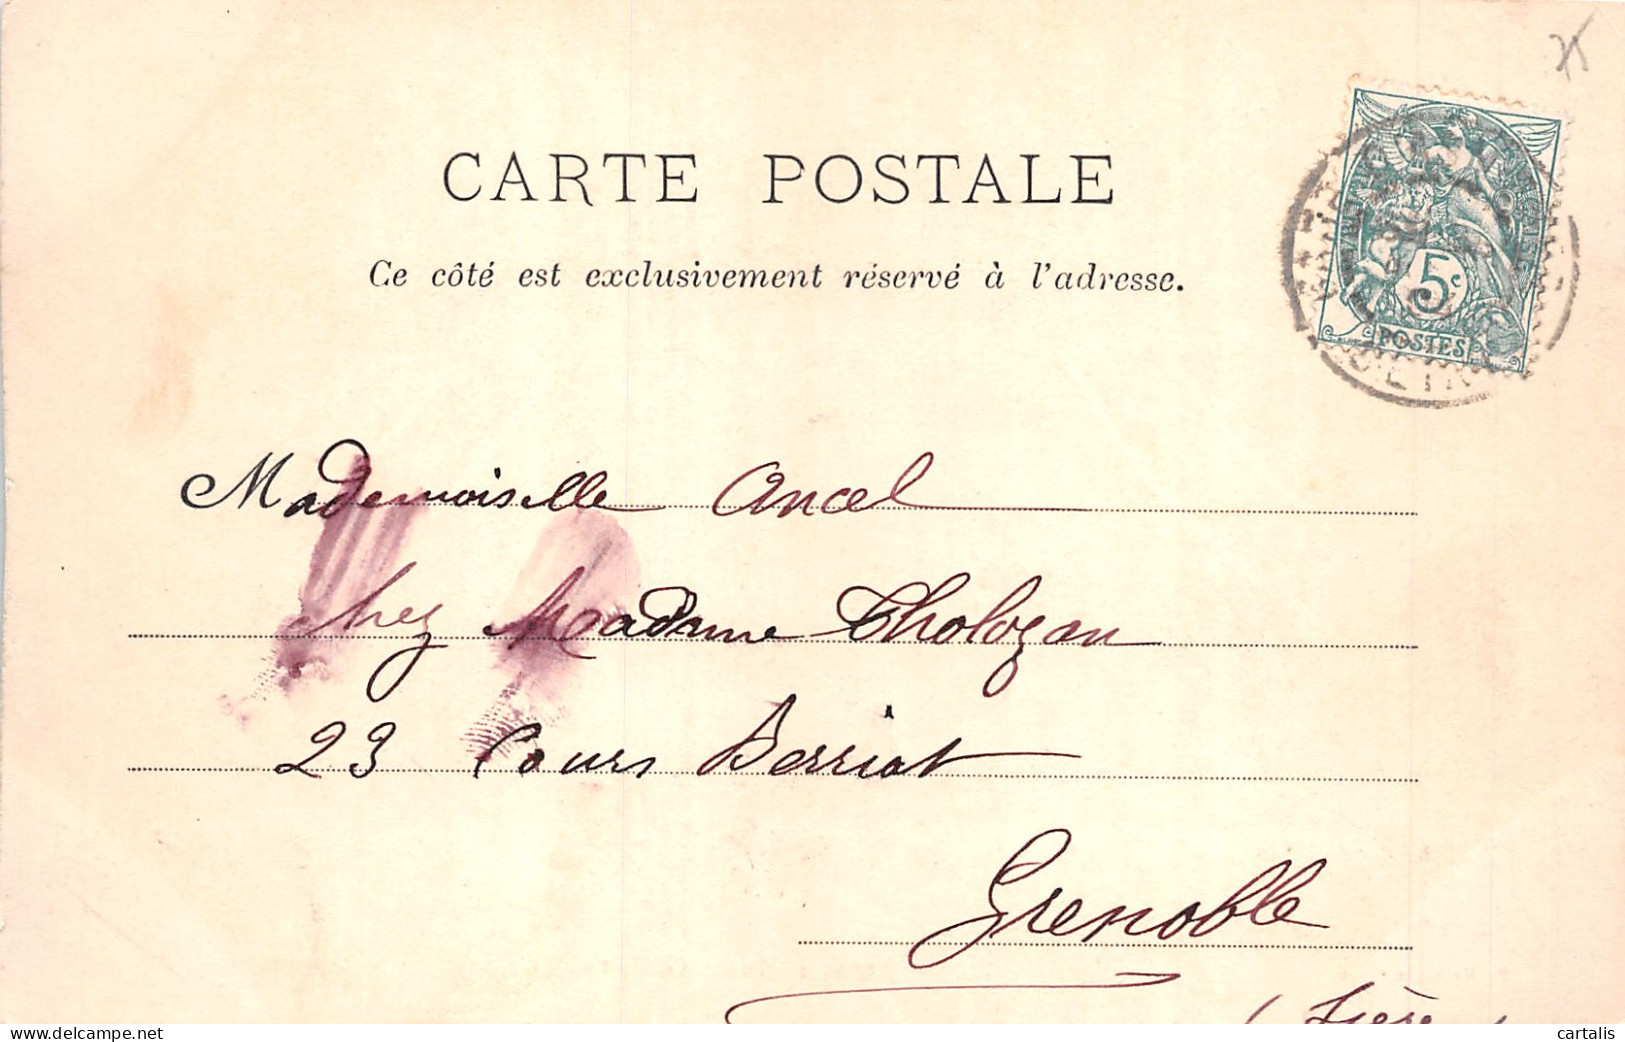 CARTE POSTALE
Ce côté est exclusivement réservé à l'adresse.
5c
POSTES
Mademoiselle Ancel
chez Madame Cholozan
23 Cours Berriat
Grenoble
(Isère)
cartalis
delcampe.net